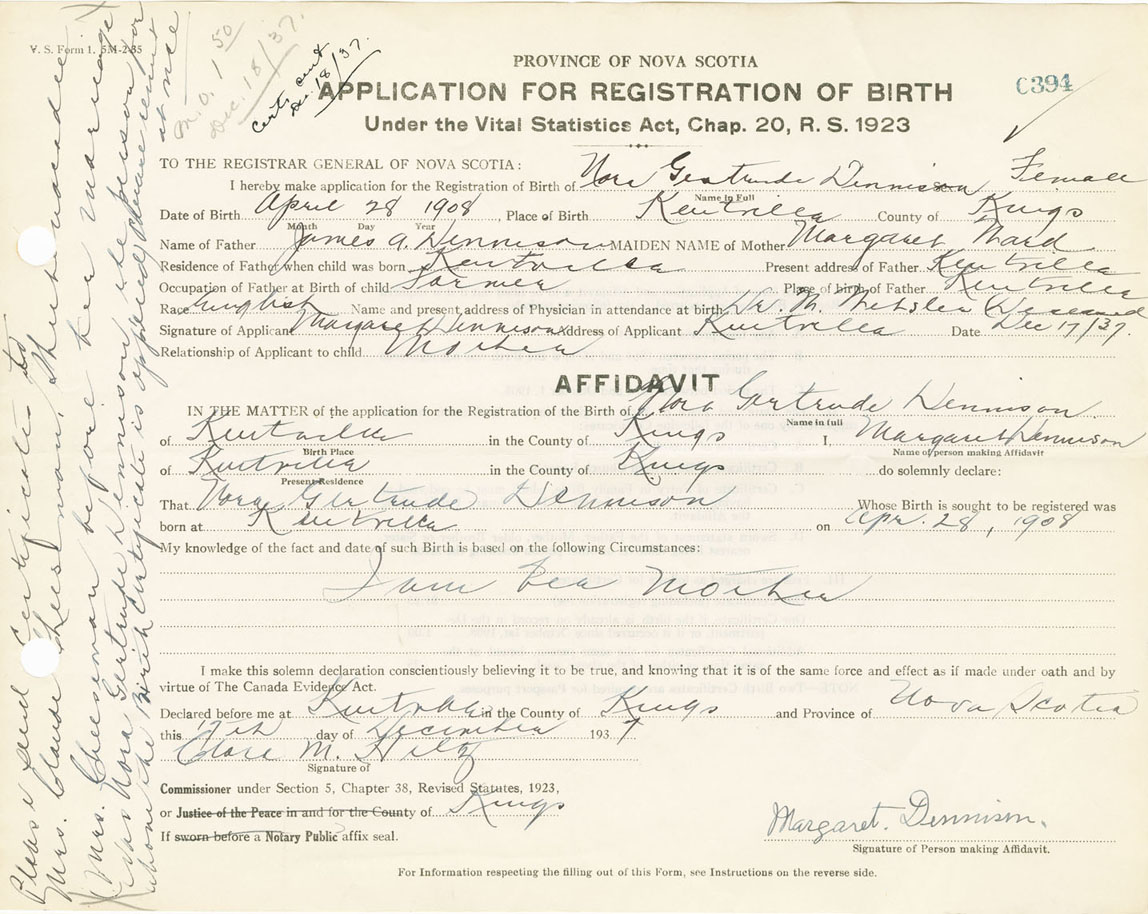 V. S. Form 1. 5M-2-35
M.O. 1.50
Dec. 18/37.
Cert. sent
Dec. 18/37.
PROVINCE OF NOVA SCOTIA
APPLICATION FOR REGISTRATION OF BIRTH
C394
Under the Vital Statistics Act, Chap. 20, R. S. 1923
TO THE REGISTRAR GENERAL OF NOVA SCOTIA:
I hereby make application for the Registration of Birth of Nora Gertrude Dennison Female
Name in Full
Date of Birth April 28 1908, Place of Birth Kentville County of Kings
Month Day Year
Name of Father James A. Dennison MAIDEN NAME of Mother Margaret Ward
Residence of Father when child was born Kentville Present address of Father Kentville
Occupation of Father at Birth of child Farmer Place of birth of Father Kentville
Race English Name and present address of Physician in attendance at birth Dr. M. Webster (Deceased
Signature of Applicant Margaret Dennison Address of Applicant Kentville Date Dec 17/37.
Relationship of Applicant to child Mother
AFFIDAVIT
IN THE MATTER of the application for the Registration of the Birth of Nora Gertrude Dennison
Name in full
of Kentville in the County of Kings I, Margaret Dennison
Birth Place Name of person making Affidavit
of Kentville in the County of Kings do solemnly declare:
Present Residence
That Nora Gertrude Dennison Whose Birth is sought to be registered was
born at Kentville on Apr. 28, 1908
My knowledge of the fact and date of such Birth is based on the following Circumstances:
I am her Mother
I make this solemn declaration conscientiously believing it to be true, and knowing that it is of the same force and effect as if made under oath and by
virtue of The Canada Evidence Act.
Declared before me at Kentville in the County of Kings and Province of Nova Scotia
this 17th day of December 1937
M. Hiltz
Signature of
Commissioner under Section 5, Chapter 38, Revised Statutes, 1923,
or Justice of the Peace in and for the County of Kings
If sworn before a Notary Public affix seal.
Margaret. Dennison.
Signature of Person making Affidavit.
For Information respecting the filling out of this Form, see Instructions on the reverse side.
Please send certificate to
Mrs. Claude Cheesman,
(Mrs. Cheesman before her marriage
was Nora Gertrude Dennison, the person for
whom the Birth Certificate is applied) Please send
at once.